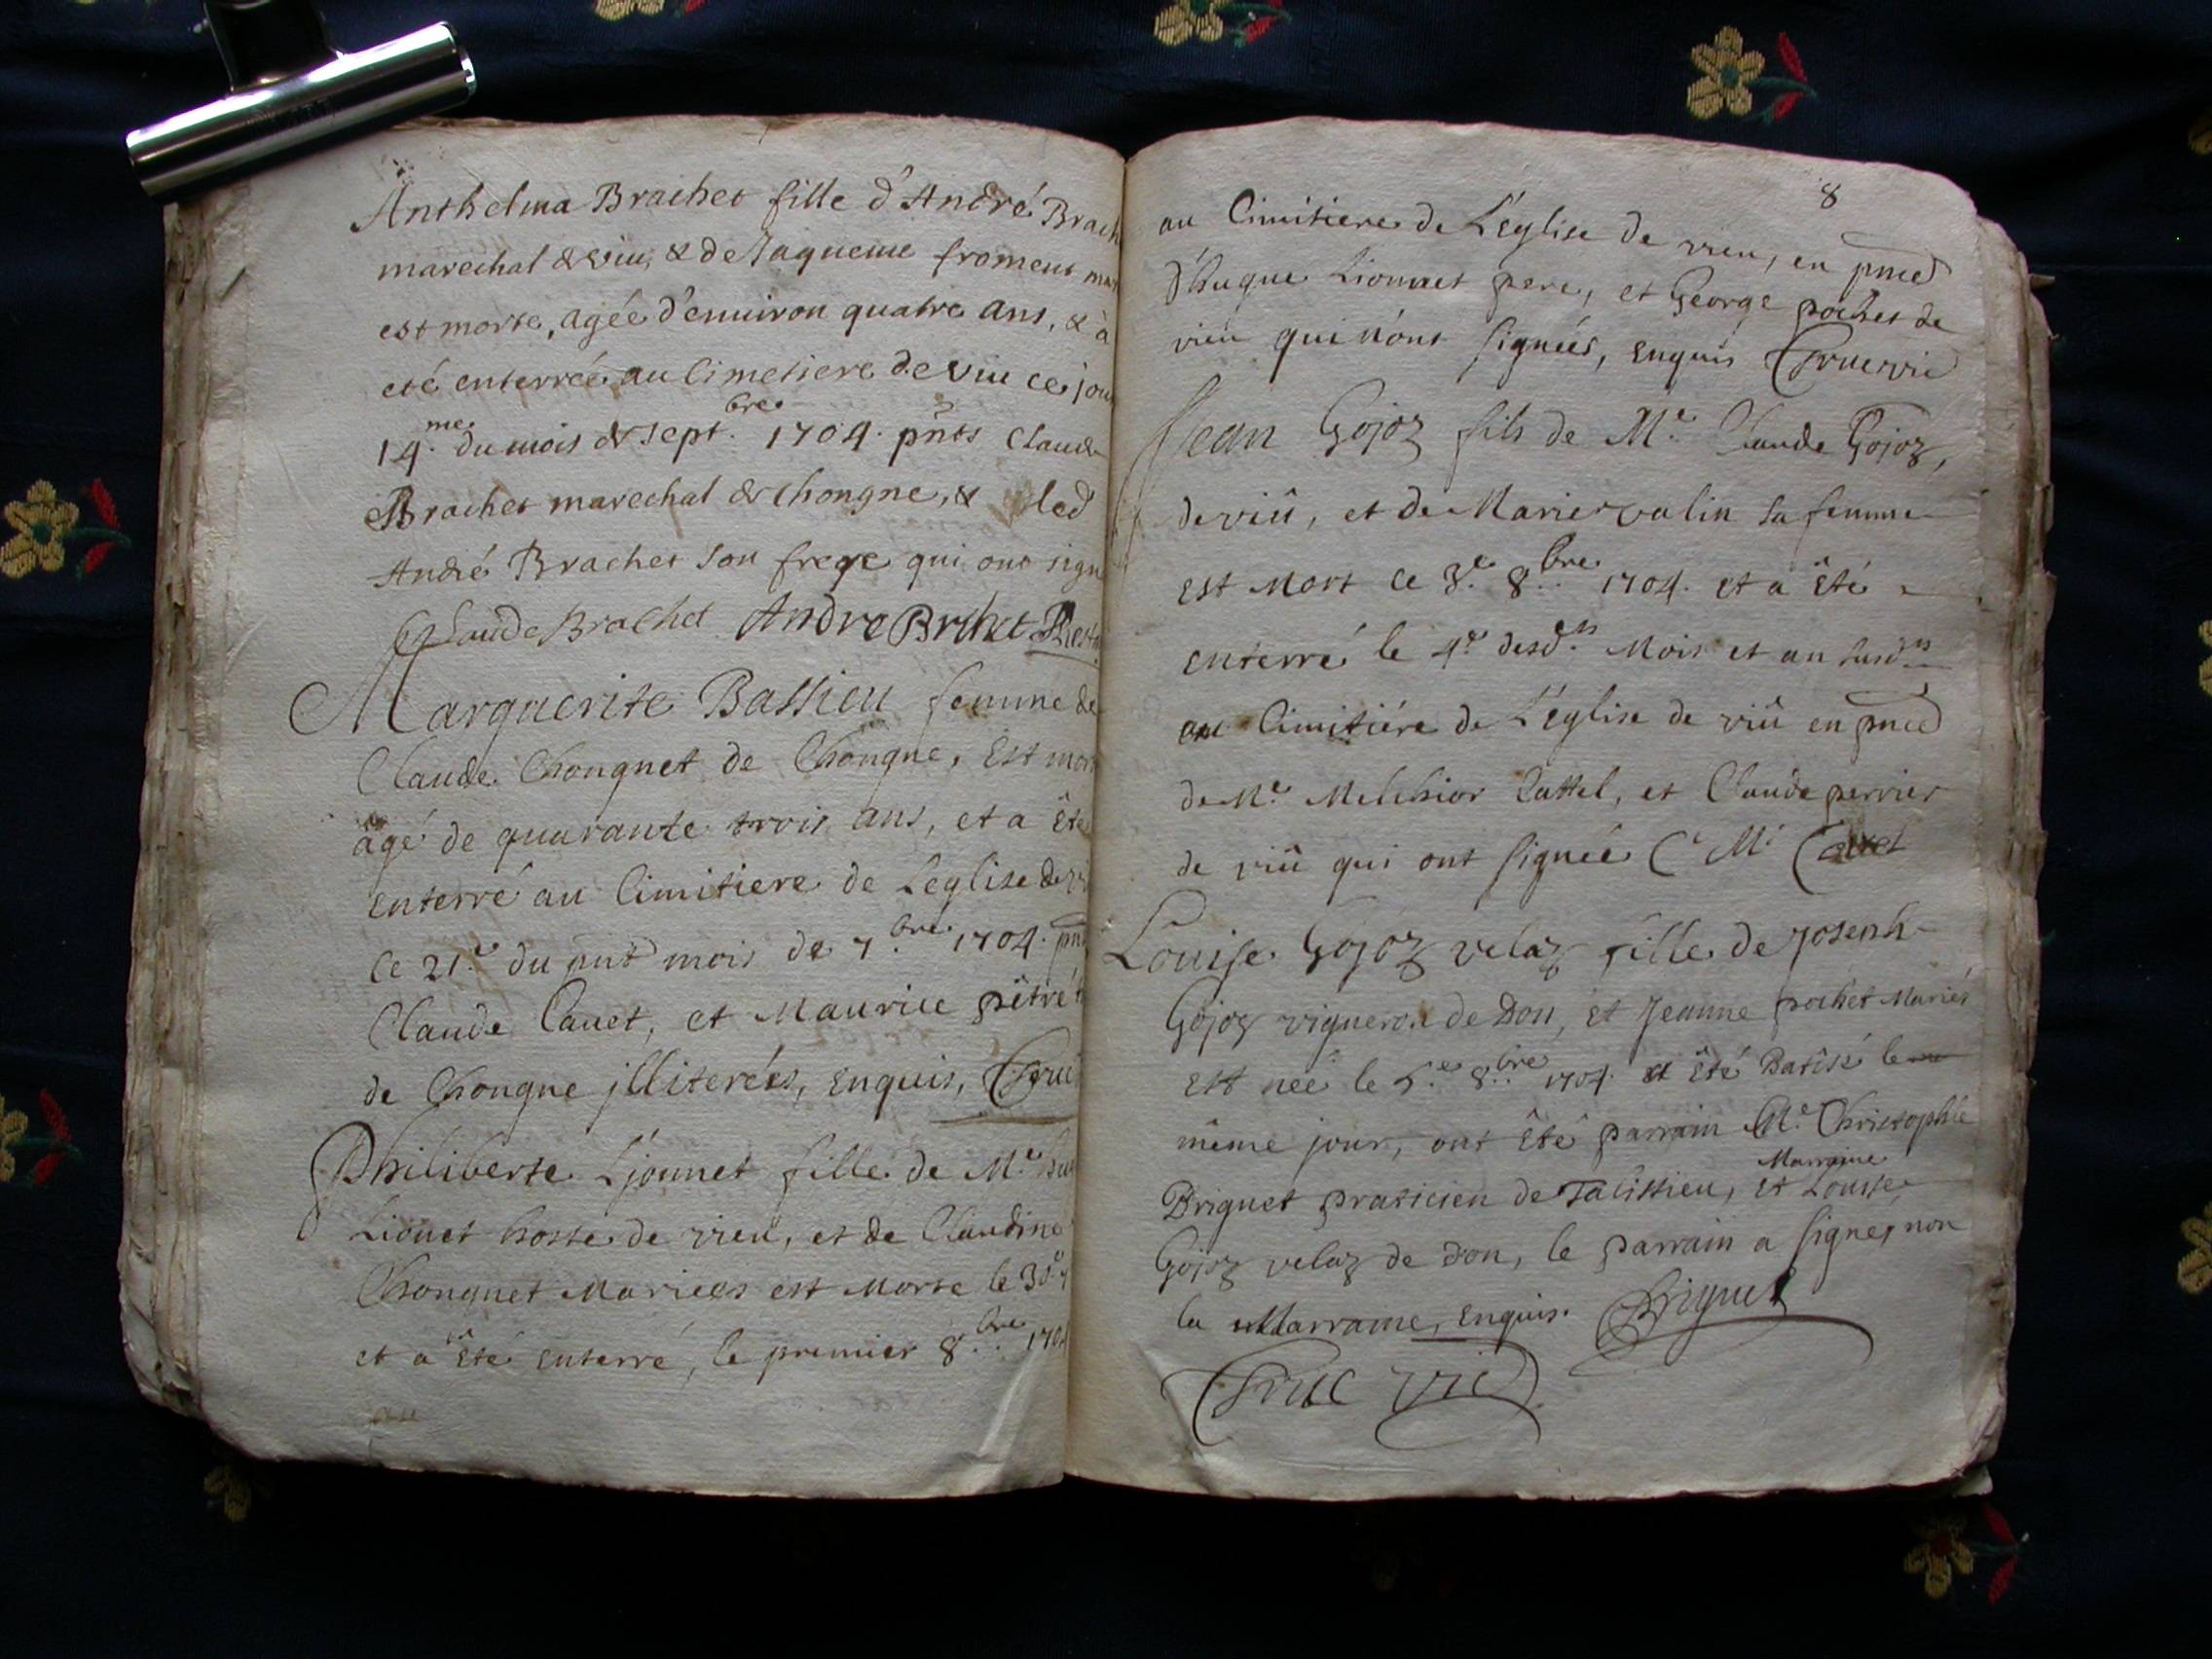 Anthelma Brachet fille d'André Brach
marechal de viu, & de Jaqueme froment mar
est morte, agée d'enuiron quatre ans, & à
eté enterrée au Cimetiere de viu ce jou
14.me du mois de sept.bre 1704. pnts Claude
Brachet marechal de Chongne, & led
André Brachet son frere qui ont sign
Claude Brachet Andre Brchet
Marguerite Bassieu femme de
Claude Chongnet de Chongne, Est mor
âgé de quarante trois ans, et a Ete
enterré au Cimitiere de Leglise de vi
Ce 21.e du pnt mois de 7.bre 1704. pn
Claude Cauet, et Maurice pêtré
de Chongne jlliterées, enquis, Truc
Philiberte Ljonnet fille de M.e hu
Lionet hoste de vieu, et de Claudine
Chongnet Mariees est Morte le 30.e 7
et a Eté enterré, le premier 8.bre 1704
au
8
au Cimitiere de L'église de vieu, en pnce
d'huque Lionnet pere, et George pochet de
vieu qui n'ont signées, enquis Truc vic
Jean Gojoz fils de M.e Claude Gojoz,
de viû, et de Marie vulin sa femme
est Mort Ce 3.e 8.bre 1704. et a Eté
enterré le 4.e desd.ts Mois et an susd.ts
au Cimitiére de L'église de viû en pnce
de M.e Melchior Cattel, et Claude perrier
de viû qui ont signée C M. Cattel
Louise Gojoz velaz fille de Joseph
Gojoz vigneron de Don, et Jeanne pochet Mariés
Est neé le 5.e 8.bre 1704. et Eté Batisé le
même jour, ont Eté parrain M.e Christophle
Marraine
Briguet praticien de Talissieu, et Louise
Gojoz velaz de Don, le parrain a signés non
la Marraine, enquis. Briguet
Truc vic